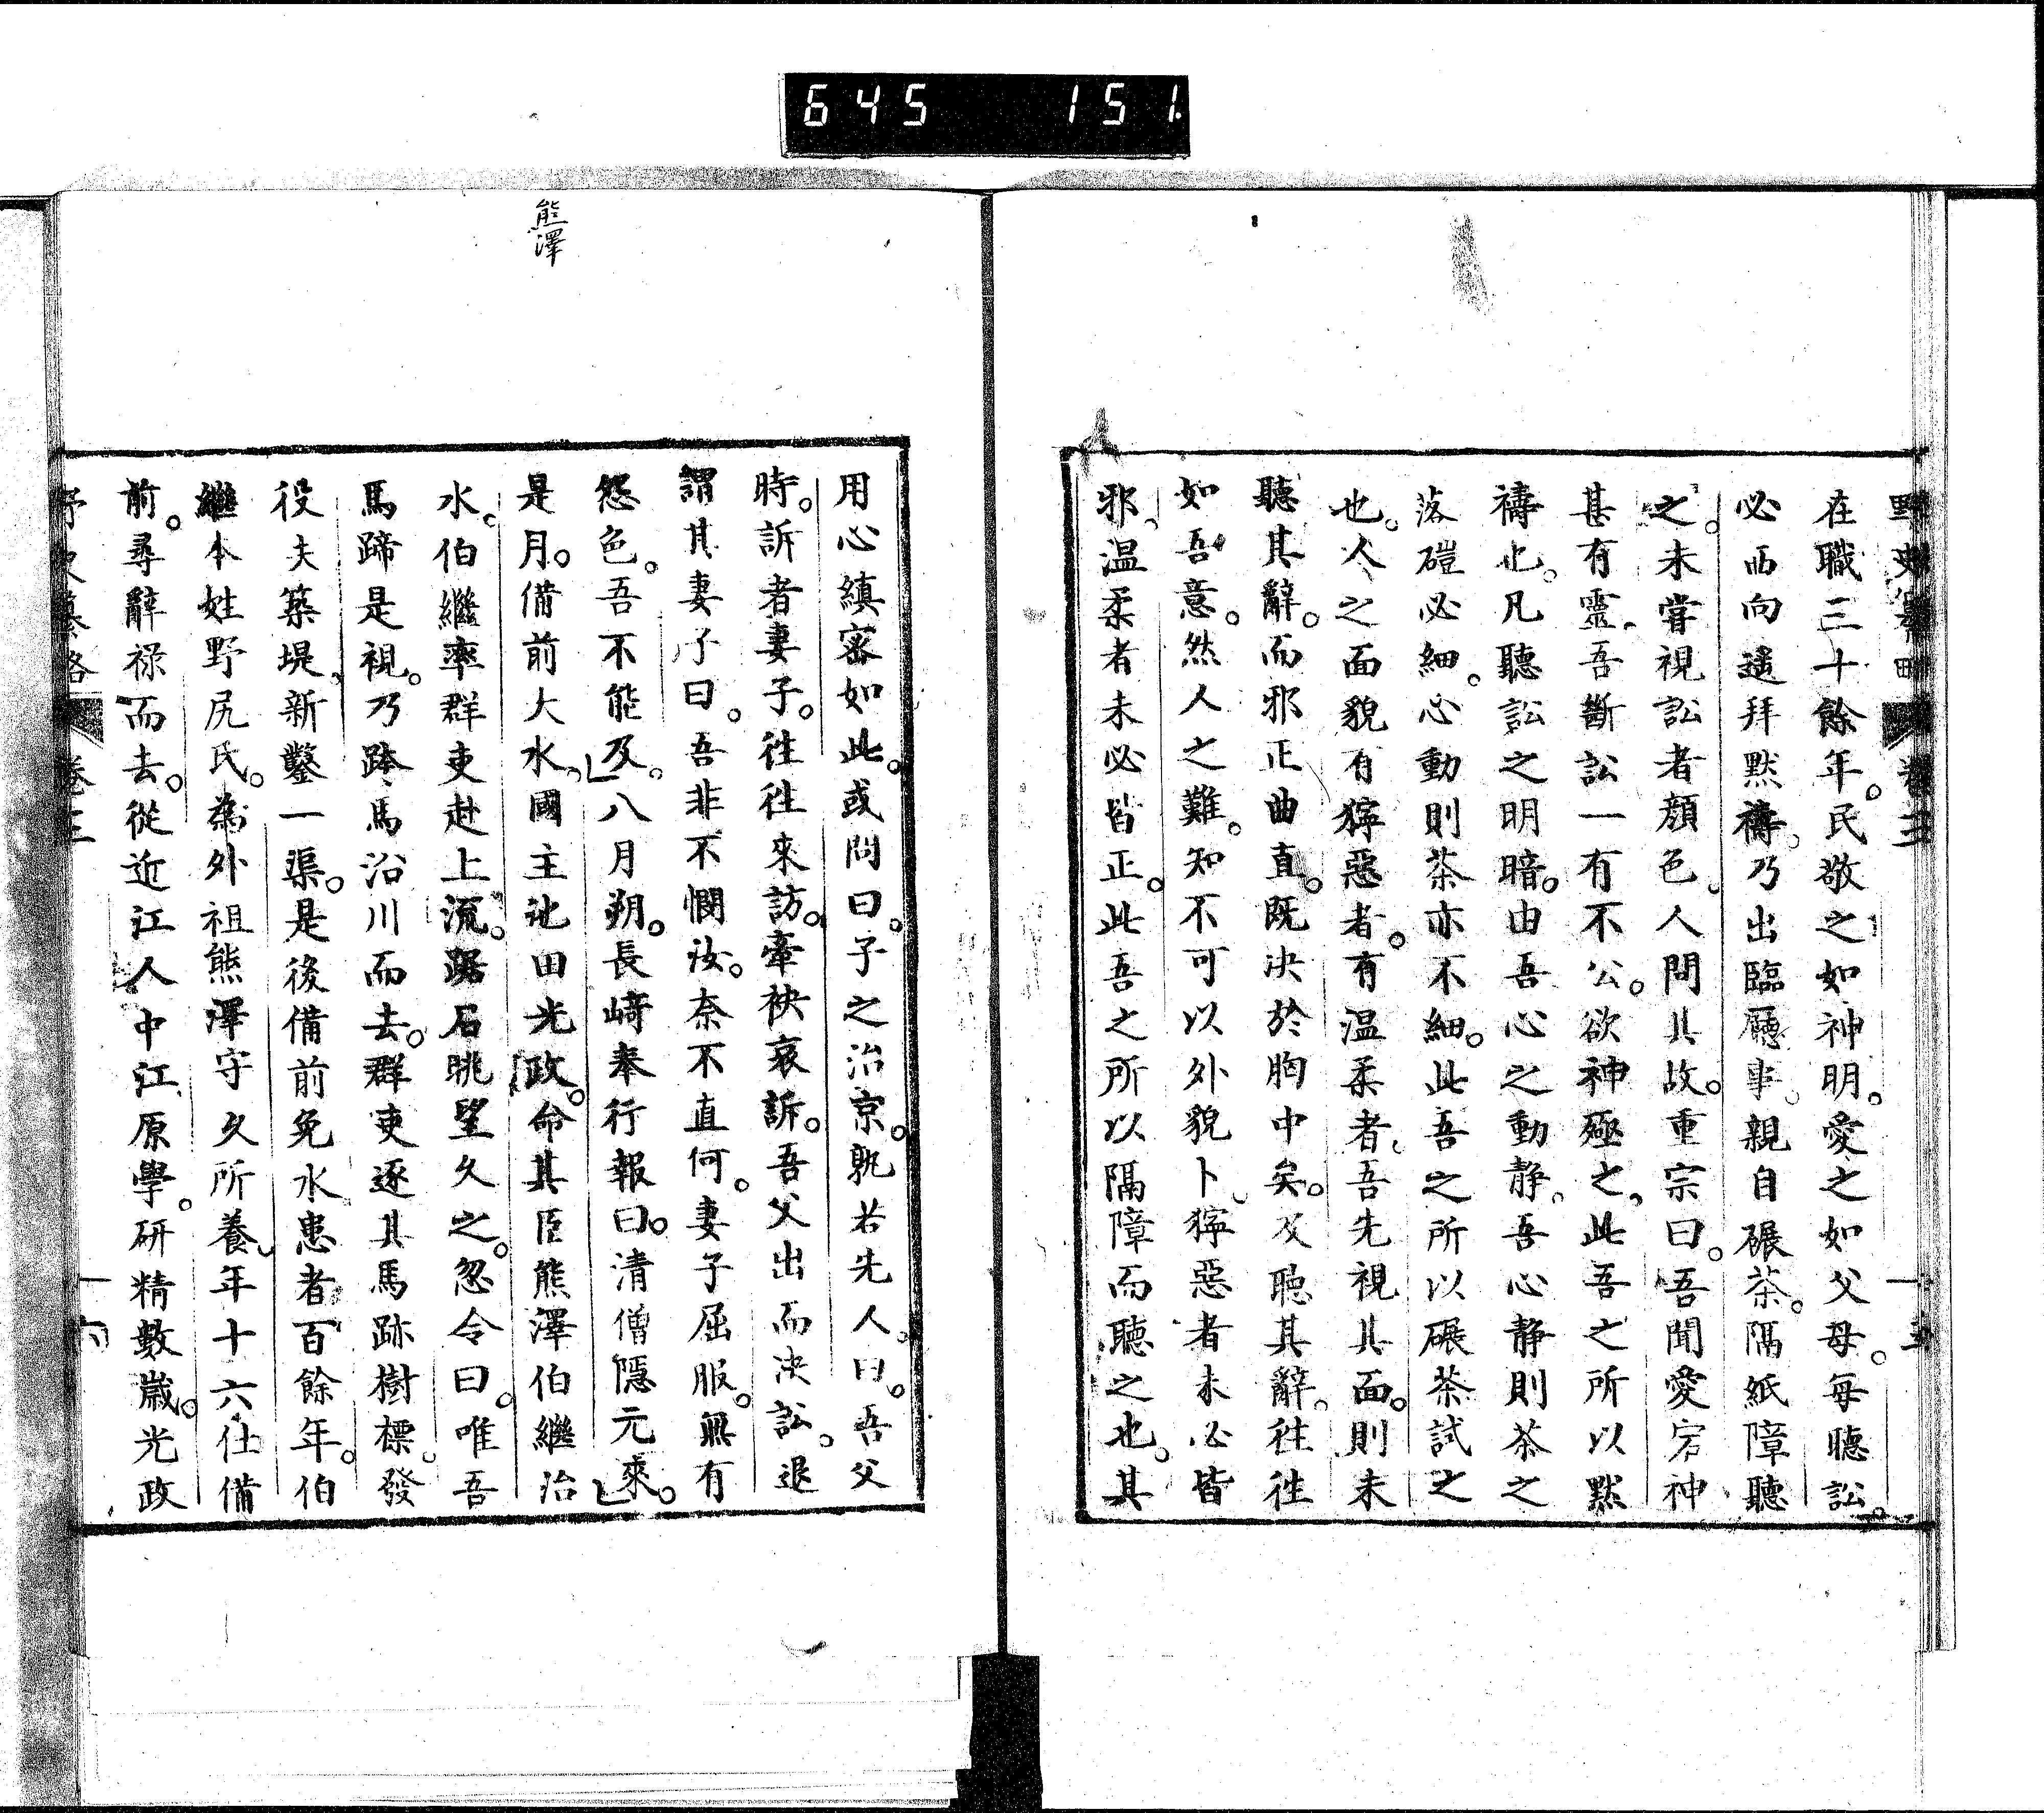 645 151.
野史纂略 卷三 十五
在職三十餘年。民敬之如神明。愛之如父母。每聽訟。
必西向遥拜黙禱。乃出臨廳事。親自碾茶。隔紙障聽
之。未嘗視訟者顔色。人問其故。重宗曰。吾聞愛宕神
甚有靈。吾斷訟一有不公。欲神殛之。此吾之所以黙
禱也。凡聽訟之明暗。由吾心之動静。吾心静則茶之
落磑必細。心動則茶亦不細。此吾之所以碾茶試之
也。人之面貌有獰惡者。有温柔者。吾先視其面。則未
聽其辭。而邪正曲直。既决於胸中矣。及聽其辭。往往
如吾意。然人之難知不可以外貌卜。獰惡者未必皆
邪。温柔者未必皆正。此吾之所以隔障而聽之也。其
熊澤
用心縝密如此。或問曰。子之治京。孰若先人。曰。吾父
時。訴者妻子。往往來訪。牽袂哀訴。吾父出而决訟。退
謂其妻子曰。吾非不憫汝。奈不直何。妻子屈服。無有
怨色。吾不能及。八月朔。長﨑奉行報曰。清僧隱元來。
是月。備前大水。國主池田光政。命其臣熊澤伯繼治
水。伯繼率群吏赴上流。踞石眺望久之。忽令曰。唯吾
馬蹄是視。乃跨馬沿川而去。群吏逐其馬跡樹標。發
役夫築堤。新鑿一渠。是後備前免水患者百餘年。伯
繼本姓野尻氏。為外祖熊澤守久所養。年十六仕備
前。尋辭禄而去。從近江人中江原學。研精數歳。光政
野史纂略 卷三 十六